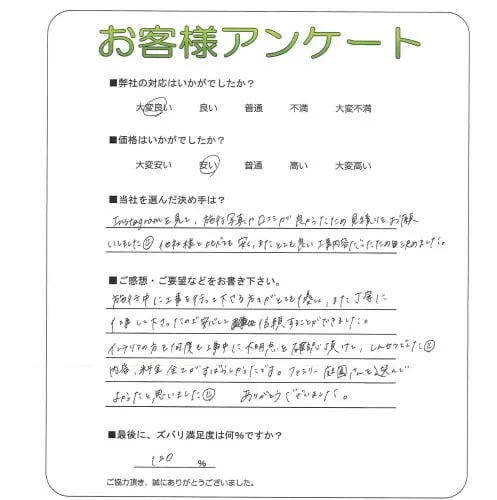 お客様アンケート
■弊社の対応はいかがでしたか？
大変良い 良い 普通 不満 大変不満
■価格はいかがでしたか？
大変安い 安い 普通 高い 大変高い
■当社を選んだ決め手は？
Instagramを見て、施行写真や口コミが良かったため見積りをお願
いしました☺ 他社様と比べても安く、またとても良い工事内容だったため決めました。
■ご感想・ご要望などをお書き下さい。
施行中に工事を行って下さる方々がとても優しく、また丁寧に
仕事して下さったので安心して信頼することができました。
インテリアの方も何度も工事中に不明点を確認頂けて、しんせつでした☺
内容、料金 全てがすばらしかったです。ファミリー庭園さんを選んで
よかったと思いました☺ ありがとうございました。
■最後に、ズバリ満足度は何%ですか？
120 %
ご協力頂き、誠にありがとうございました。